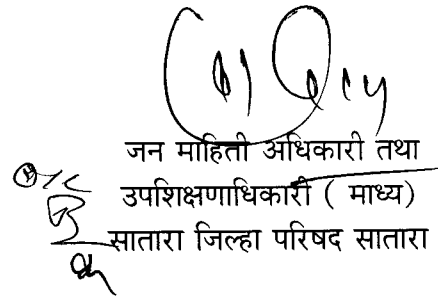 जन माहिती अधिकारी तथा
उपशिक्षणाधिकारी ( माध्य)
सातारा जिल्हा परिषद सातारा